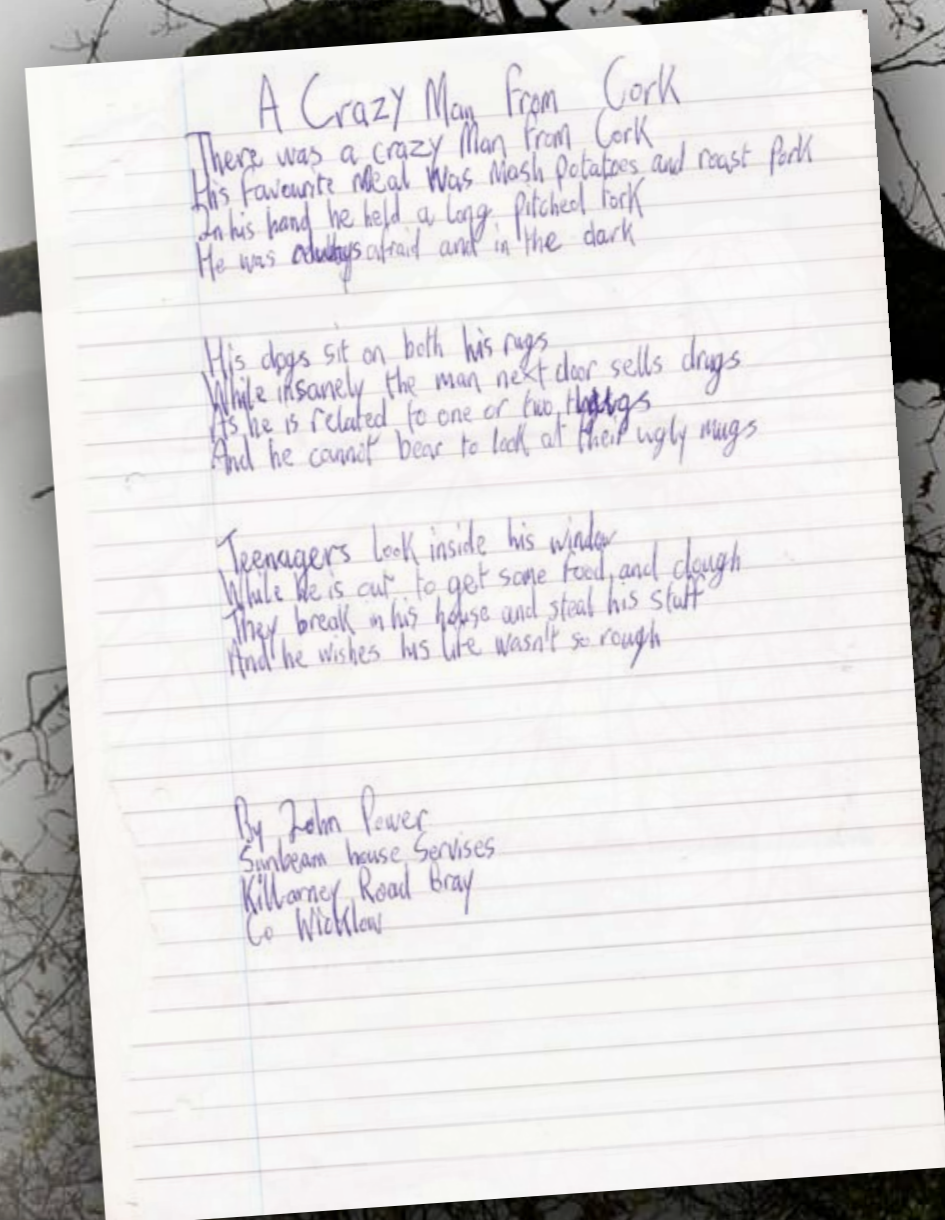 A Crazy Man From Cork
There was a crazy Man from Cork
His favourite Meal Was Mash potatoes and roast Pork
In his hand he held a long pitched fork
He was always afraid and in the dark
His dogs sit on both his rugs
While insanely the man next door sells drugs
As he is related to one or two thugs
And he cannot bear to look at their ugly mugs
Teenagers Look inside his window
While he is out to get some food and dough
They break in his house and steal his stuff
And he wishes his life wasn't so rough
By John Power
Sunbeam house Servises
Killarney Road Bray
Co Wicklow